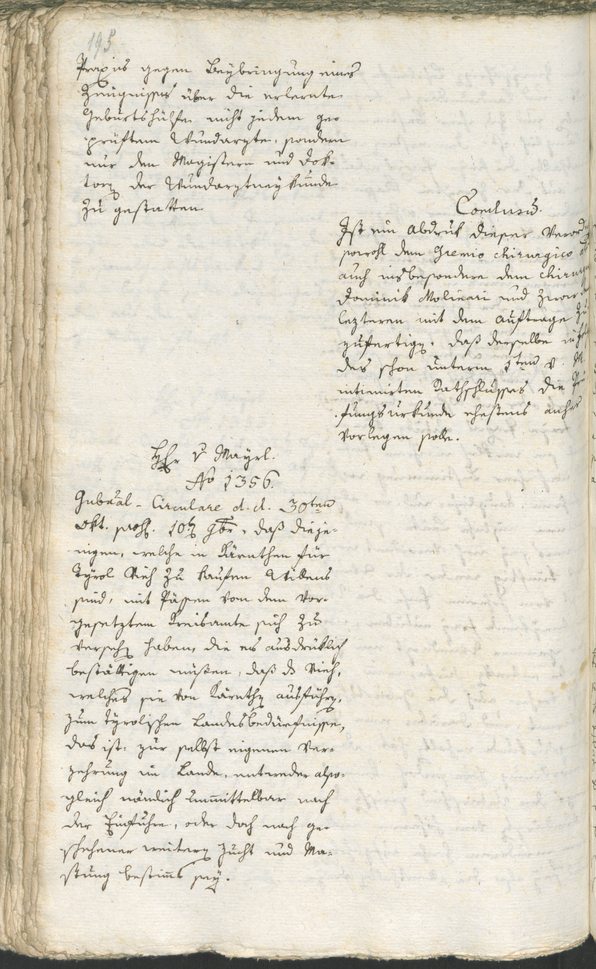 195
Praxis gegen Beybringung eines
Zeugnisses über die erlernte
Geburtshülfe nicht jedem ge¬
prüften Wundarzte, sondern
nur den Magistern und Dok¬
torn der Wundarztneykunde
zu gestatten.
Conclusum.
Ist ein Abdruck dieser Verord
sowohl dem Gremio chirurgico als
auch insbesondere dem Chirurg
Dominik Molinari und zwar
lezteren mit dem Auftrage zu
zufertigen, daß derselbe
des schon unterm 1ten
intimirten Rathschlusses die
fungsurkunde ehestens anher
vorlegen solle.
Hr. v. Mayrl.
No 1356.
Gubernial-Circulare d.d. 30ten
Okt. præs. 10ten 9br, daß dieje¬
nigen, welche in Kärnthen für
Tyrol Vieh zu kaufen Willens
sind, mit Pässen von dem vor¬
gesetzten Kreisamte sich zu
versehen haben, die es ausdrüklich
bestättigen müßen, daß das Vieh,
welches sie von Kärnthen ausführen,
zum tyrolischen Landesbedürfnisse,
das ist: zur selbst eigenen Ver¬
zehrung im Lande, entweder also¬
gleich nämlich unmittelbar nach
der Einfuhre, oder doch nach ge¬
schehener weitern Zucht und Ma¬
stung bestimmt sey.